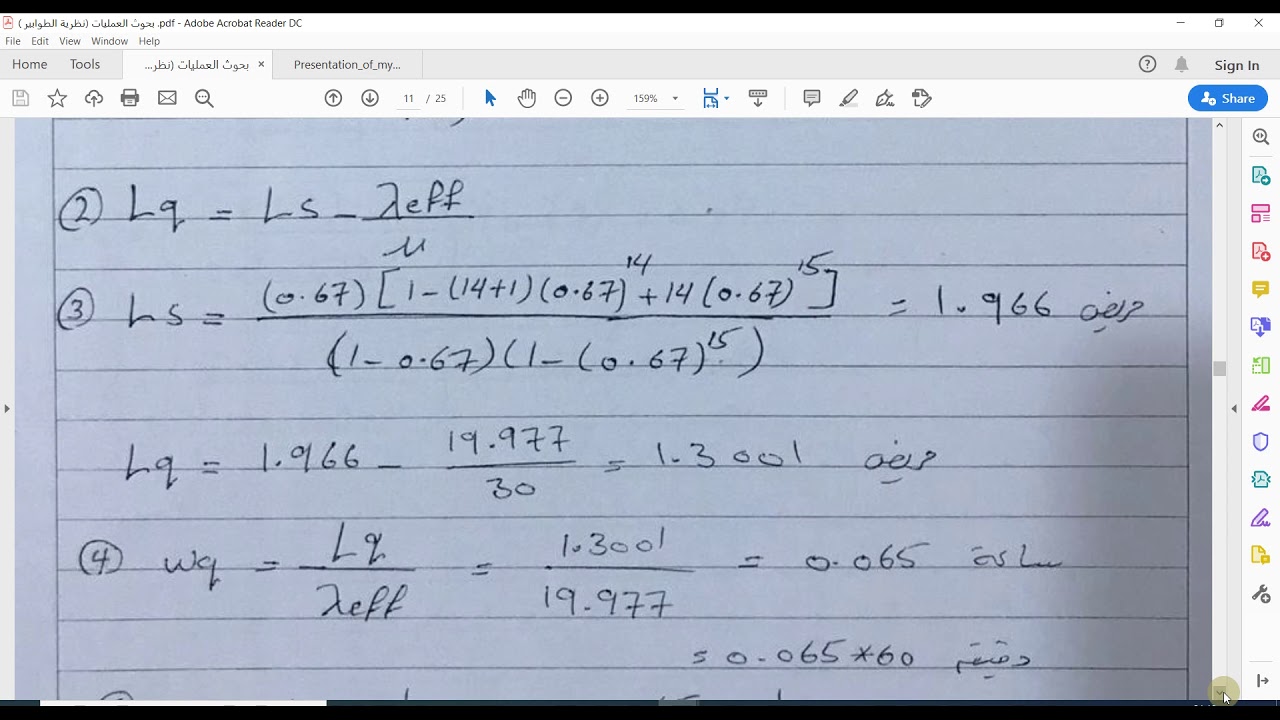 بحوث العمليات (نظرية الطوابير ).pdf - Adobe Acrobat Reader DC
File Edit View Window Help
Home Tools بحوث العمليات (نظر... × Presentation_of_my... Sign In
11 / 25 159% Share
② Lq = Ls - λeff / μ
③ Ls = (0.67) [1 - (14+1) (0.67)^14 + 14 (0.67)^15] / (1 - 0.67) (1 - (0.67)^15) = 1.966
Lq = 1.966 - 19.977 / 30 = 1.3001
④ wq = Lq / λeff = 1.3001 / 19.977 = 0.065 ساعة
= 0.065*60 دقيقة